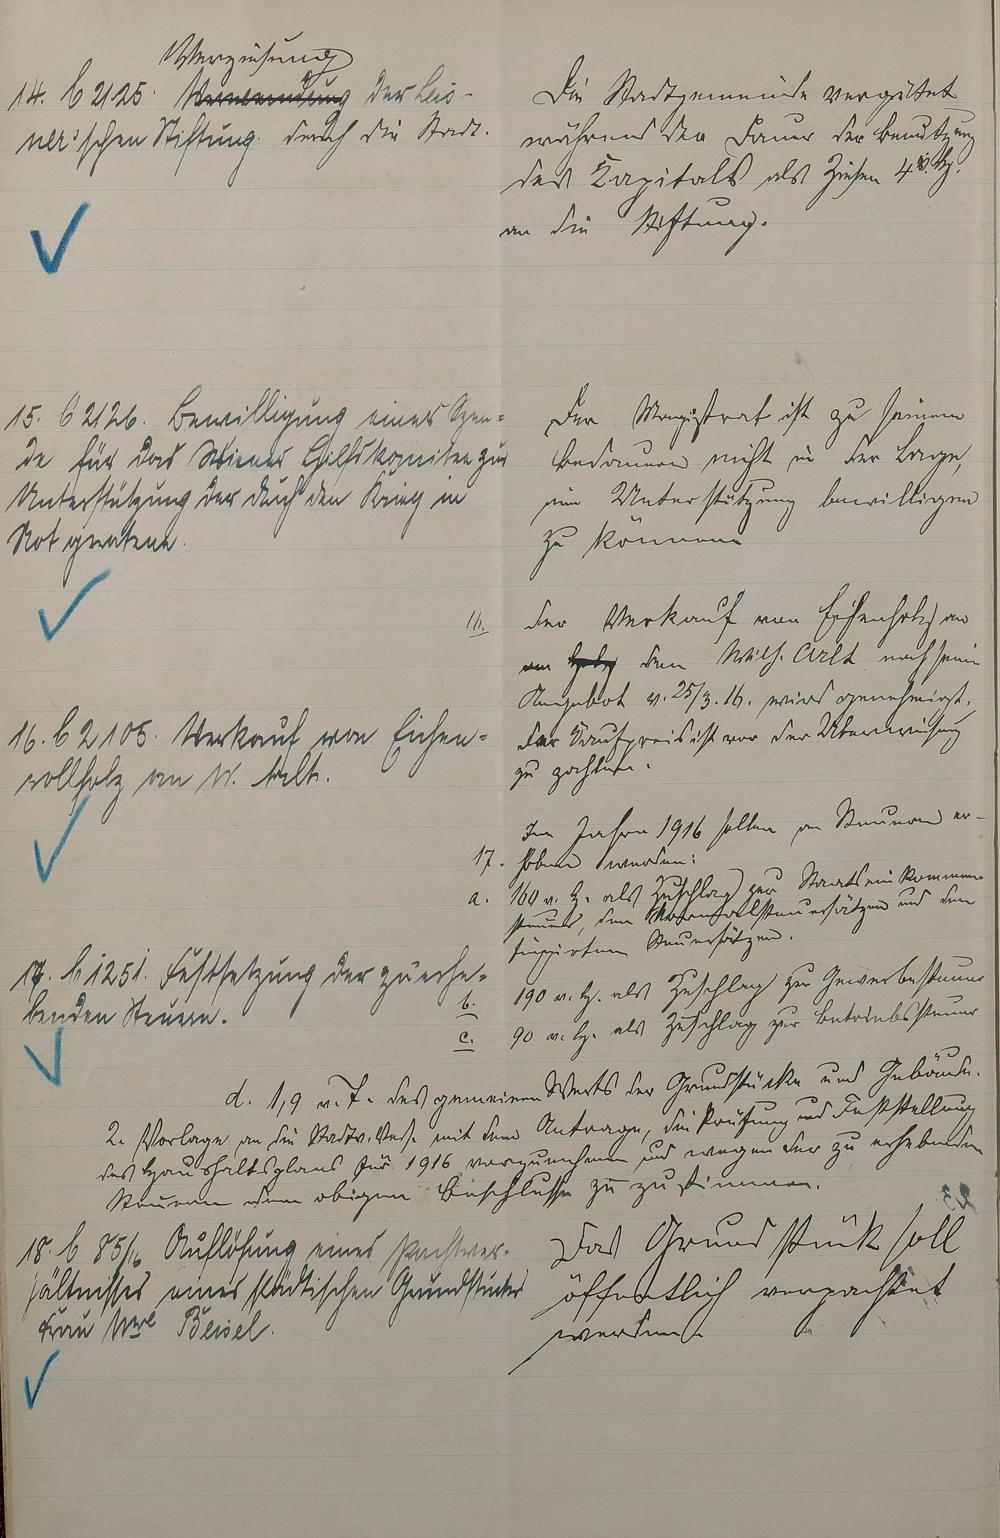 Verzinsung
14. b 2125. Verwendung der Leis-
ner'schen Stiftung durch die Stadt.
Die Stadtgemeinde vergütet
während der Dauer der Benutzung
des Kapitals als Zinsen 4 v. H.
an die Stiftung.
15. b 2126. Bewilligung einer Spen-
de für das Wiener Hilfskomitee zur
Unterstützung der durch den Krieg in
Not geratenen.
Der Magistrat ist zu seinem
Bedauern nicht in der Lage,
eine Unterstützung bewilligen
zu können
16. b 2105. Verkauf von Eichen-
rollholz an W. Arlt.
16. Der Verkauf von Eichenholz an
an Holz dem Wilh. Arlt nach sein
Angebot v. 25/3. 16. wird genehmigt.
Der Kaufpreis ist vor der Überweisung
zu zahlen.
17. b 1251. Festsetzung der zu erhe-
benden Steuern.
Im Jahre 1916 sollen an Steuern er-
17. hoben werden:
a. 160 v. H. als Zuschlag zur Staatseinkommen
steuer, den Normalsteuersätzen und den
fingierten Steuersätzen.
b. 190 v. H. als Zuschlag zur Gewerbesteuer
c. 90 v. H. als Zuschlag zur Betriebssteuer
d. 1,9 v. T. des gemeinen Werts der Grundstücke und Gebäude.
2. Vorlage an die Stadtv. Vers. mit dem Antrage, die Prüfung und Feststellung
des Haushaltsplans für 1916 vorzunehmen und wegen der zu erhebenden
Steuern dem obigen Beschlusse zu zustimmen.
18. b 85/16 Auflösung eines Pachtver-
hältnisses eines städtischen Grundstückes
Frau Wwe Beisel.
Das Grundstück soll
öffentlich verpachtet
werden.